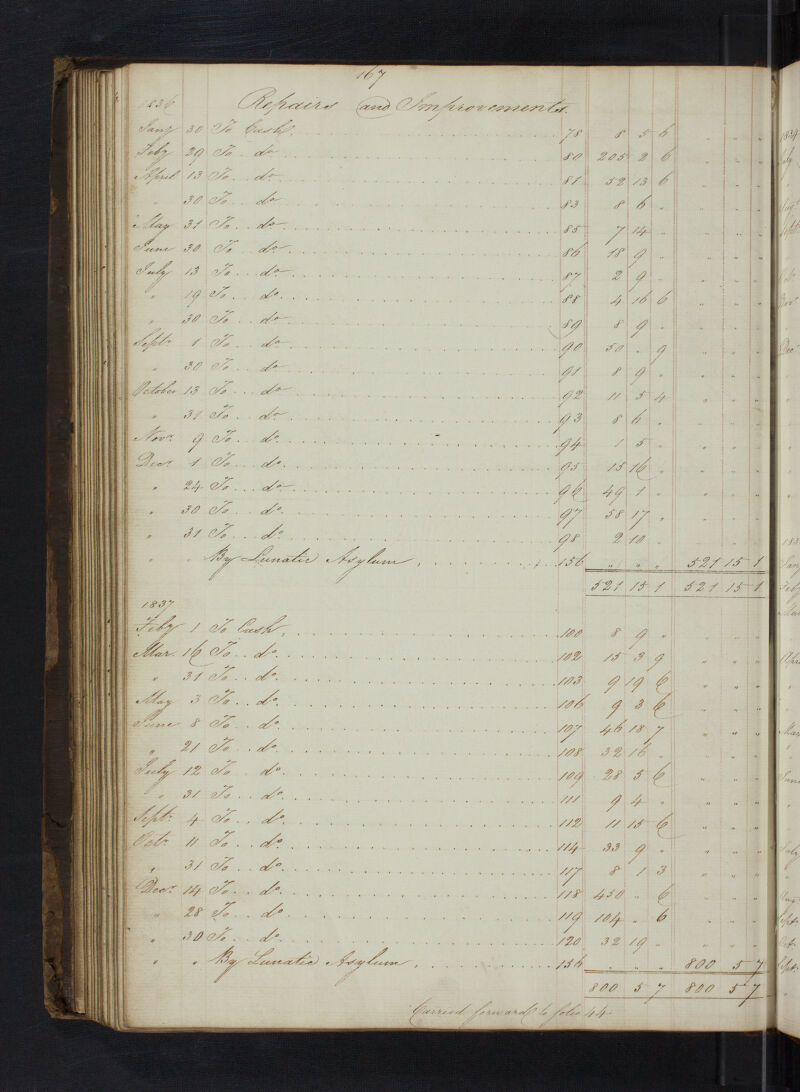 167
1836 Repairs and Improvements.
Jany 30 To Cash 78 8 5 6 " " "
Feby 29 To do 80 205 2 6 " " "
April 13 To do 81 52 13 6 " " "
" 30 To do 83 8 6 " " " "
May 31 To do 85 7 14 " " " "
June 30 To do 86 18 9 " " " "
July 13 To do 87 2 9 " " " "
" 19 To do 88 4 16 6 " " "
" 30 To do 89 8 9 " " " "
Septr 1 To do 90 50 " 9 " " "
" 30 To do 91 8 9 " " " "
October 13 To do 92 11 5 4 " " "
" 31 To do 93 8 6 " " " "
Novr 9 To do 94 1 5 " " " "
Decr 1 To do 95 15 16 " " " "
" 24 To do 96 49 1 " " " "
" 30 To do 97 58 17 " " " "
" 31 To do 98 2 10 " " " "
" " By Lunatic Asylum 156 " " " 521 15 1
521 15 1 521 15 1
1837
Feby 1 To Cash 100 8 9 " " " "
Mar 16 To do 102 15 3 9 " " "
" 31 To do 103 9 19 6 " " "
May 3 To do 106 9 3 6 " " "
June 8 To do 107 46 18 7 " " "
" 21 To do 108 32 16 " " " "
July 12 To do 109 28 5 6 " " "
" 31 To do 111 9 4 " " " "
Septr 4 To do 112 11 15 6 " " "
Octr 11 To do 114 33 9 " " " "
" 31 To do 117 8 1 3 " " "
Decr 14 To do 118 450 " 6 " " "
" 28 To do 119 104 " 6 " " "
" 30 To do 120 32 19 " " " "
" " By Lunatic Asylum 156 " " " 800 5 7
800 5 7 800 5 7
Carried forward to folio 44